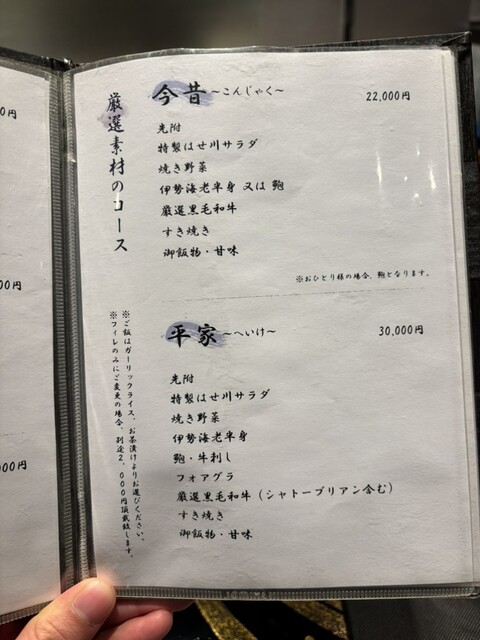 厳選素材のコース
今昔～こんじゃく～ 22,000円
先附
特製はせ川サラダ
焼き野菜
伊勢海老半身 又は 鮑
厳選黒毛和牛
すき焼き
御飯物・甘味
※おひとり様の場合、鮑となります。
平家～へいけ～ 30,000円
先附
特製はせ川サラダ
焼き野菜
伊勢海老半身
鮑・牛刺し
フォアグラ
厳選黒毛和牛（シャトーブリアン含む）
すき焼き
御飯物・甘味
※ご飯はガーリックライス、お茶漬けよりお選びください。
※フィレのみにご変更の場合、別途2,000円頂戴致します。
0円
00円
000円